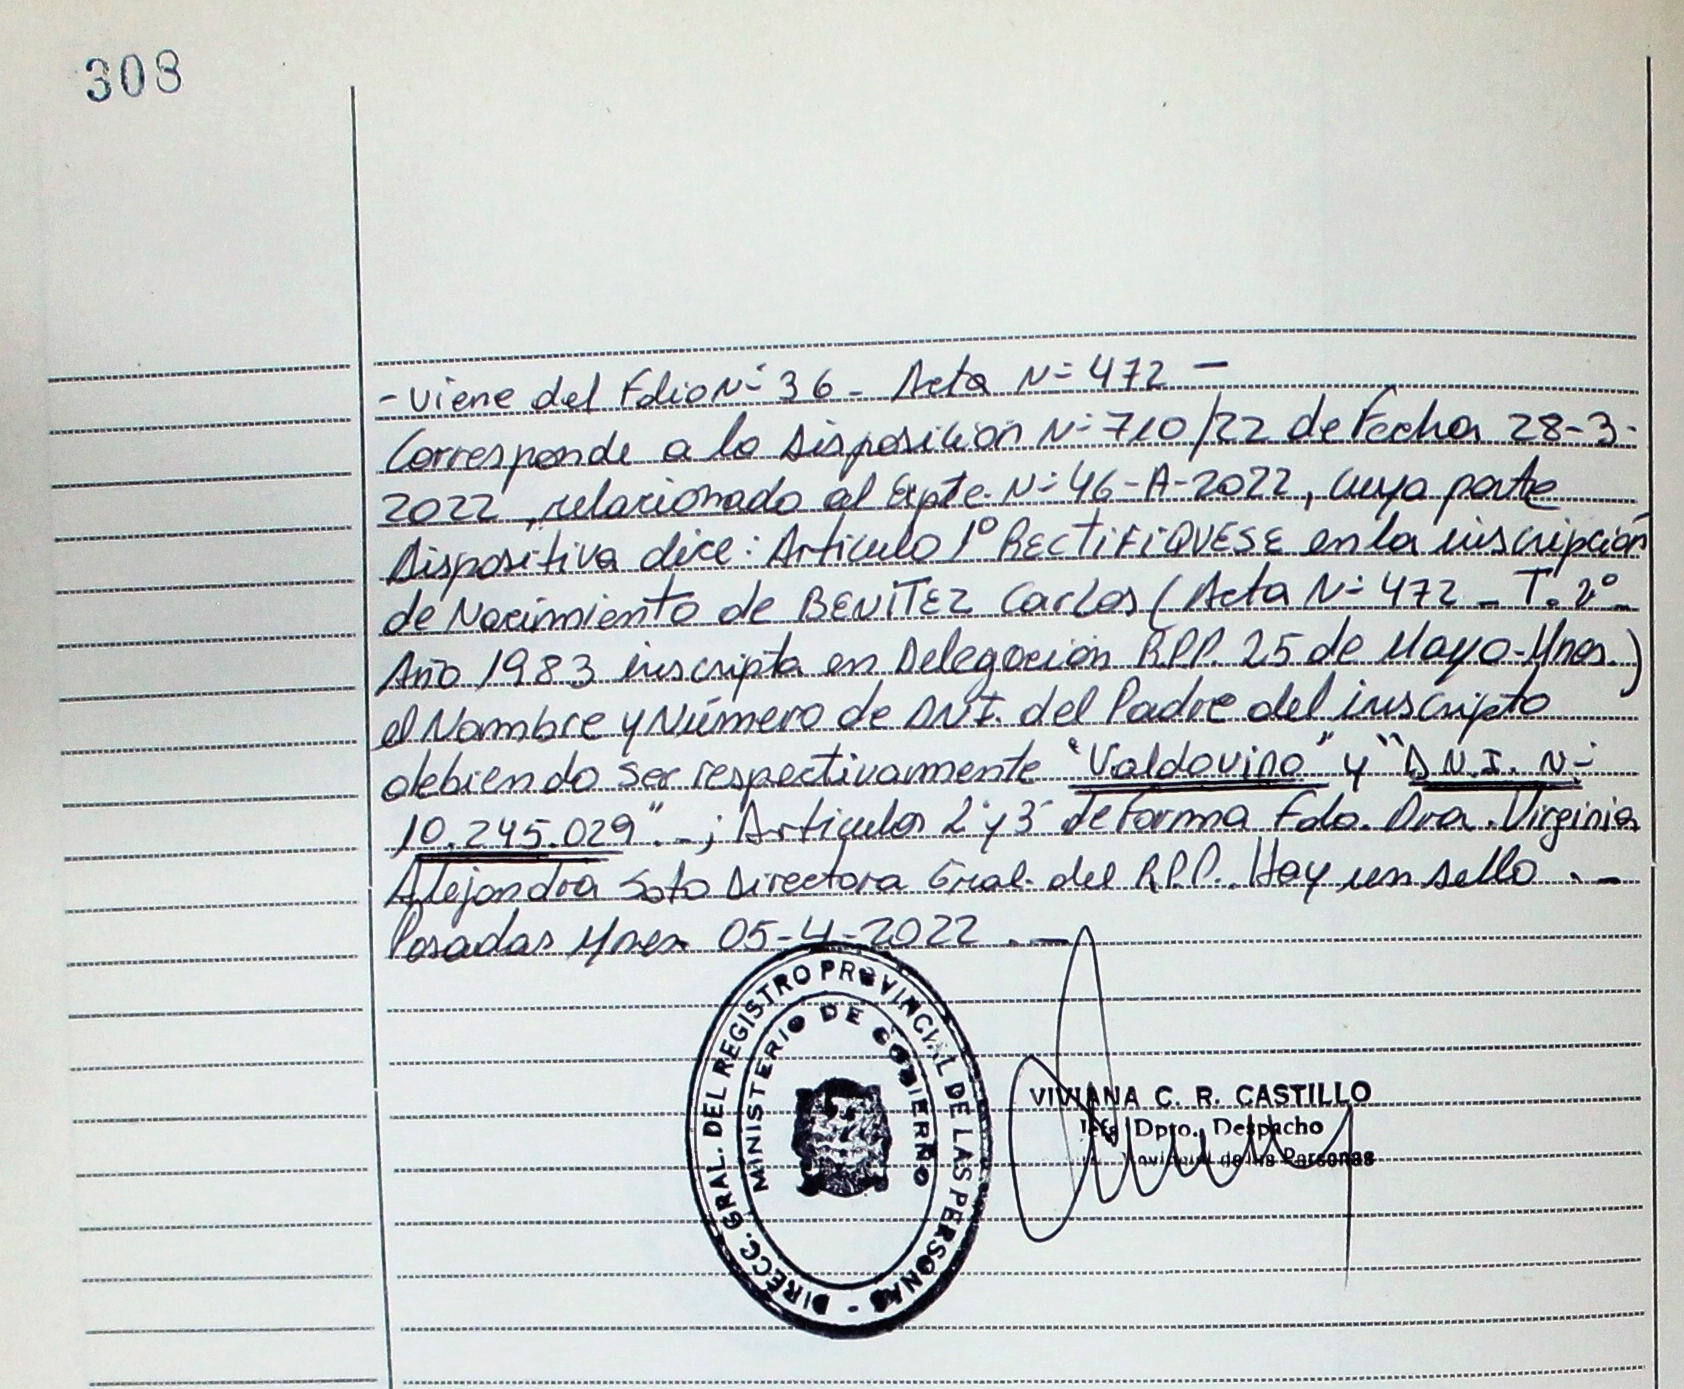 308
- Viene del Folio Nº 36 - Acta Nº 472 -
Corresponde a la Disposición Nº 710/22 de Fecha 28-3-
2022, relacionado al Expte. Nº 46-A-2022, cuya parte
Dispositiva dice: Artículo 1º RECTIFIQUESE en la inscripción
de Nacimiento de BENITEZ Carlos (Acta Nº 472 - T. 2º -
Año 1983 inscripta en Delegación R.P.P. 25 de Mayo-Mnes.)
el Nombre y Número de D.N.I. del Padre del inscripto
debiendo ser respectivamente "Valdovino" y "D.N.I. Nº
10.245.029". -; Artículos 2º y 3º de Forma Fdo. Dra. Virginia
Alejandra Soto Directora Gral. del R.P.P. Hay un sello . -
Posadas Mnes 05-4-2022 . -
DIRECC. GRAL. DEL REGISTRO PROVINCIAL DE LAS PERSONAS -
MINISTERIO DE GOBIERNO
VIVIANA C. R. CASTILLO
Jefe Dpto. Despacho
de las Personas